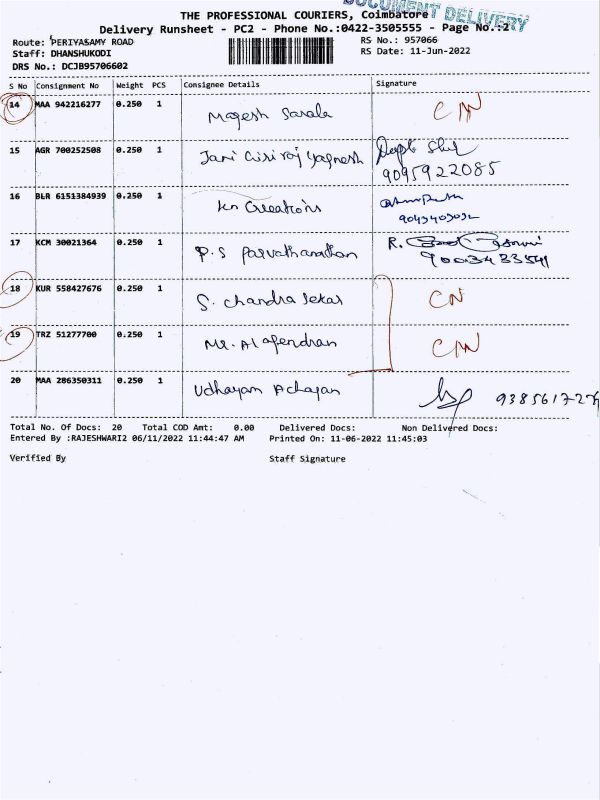 DOCUMENT DELIVERY
THE PROFESSIONAL COURIERS, Coimbatore
Delivery Runsheet - PC2 - Phone No.:0422-3505555 - Page No.:2
Route: PERIYASAMY ROAD RS No.: 957066
Staff: DHANSHUKODI RS Date: 11-Jun-2022
DRS No.: DCJB95706602
S No Consignment No Weight PCS Consignee Details Signature
14 MAA 942216277 0.250 1 Magesh Sarala
15 AGR 700252508 0.250 1 Jani Giriraj Yagnesh 9095922085
16 BLR 6151384939 0.250 1 kn Creations
17 KCM 30021364 0.250 1 P.S Parvathanathan R.
18 KUR 558427676 0.250 1 S. Chandra Sekar CN
19 TRZ 51277700 0.250 1 Mr.
20 MAA 286350311 0.250 1 Udhayam
Total No. Of Docs: 20 Total COD Amt: 0.00 Delivered Docs: Non Delivered Docs:
Entered By :RAJESHWARI2 06/11/2022 11:44:47 AM Printed On: 11-06-2022 11:45:03
Verified By Staff Signature